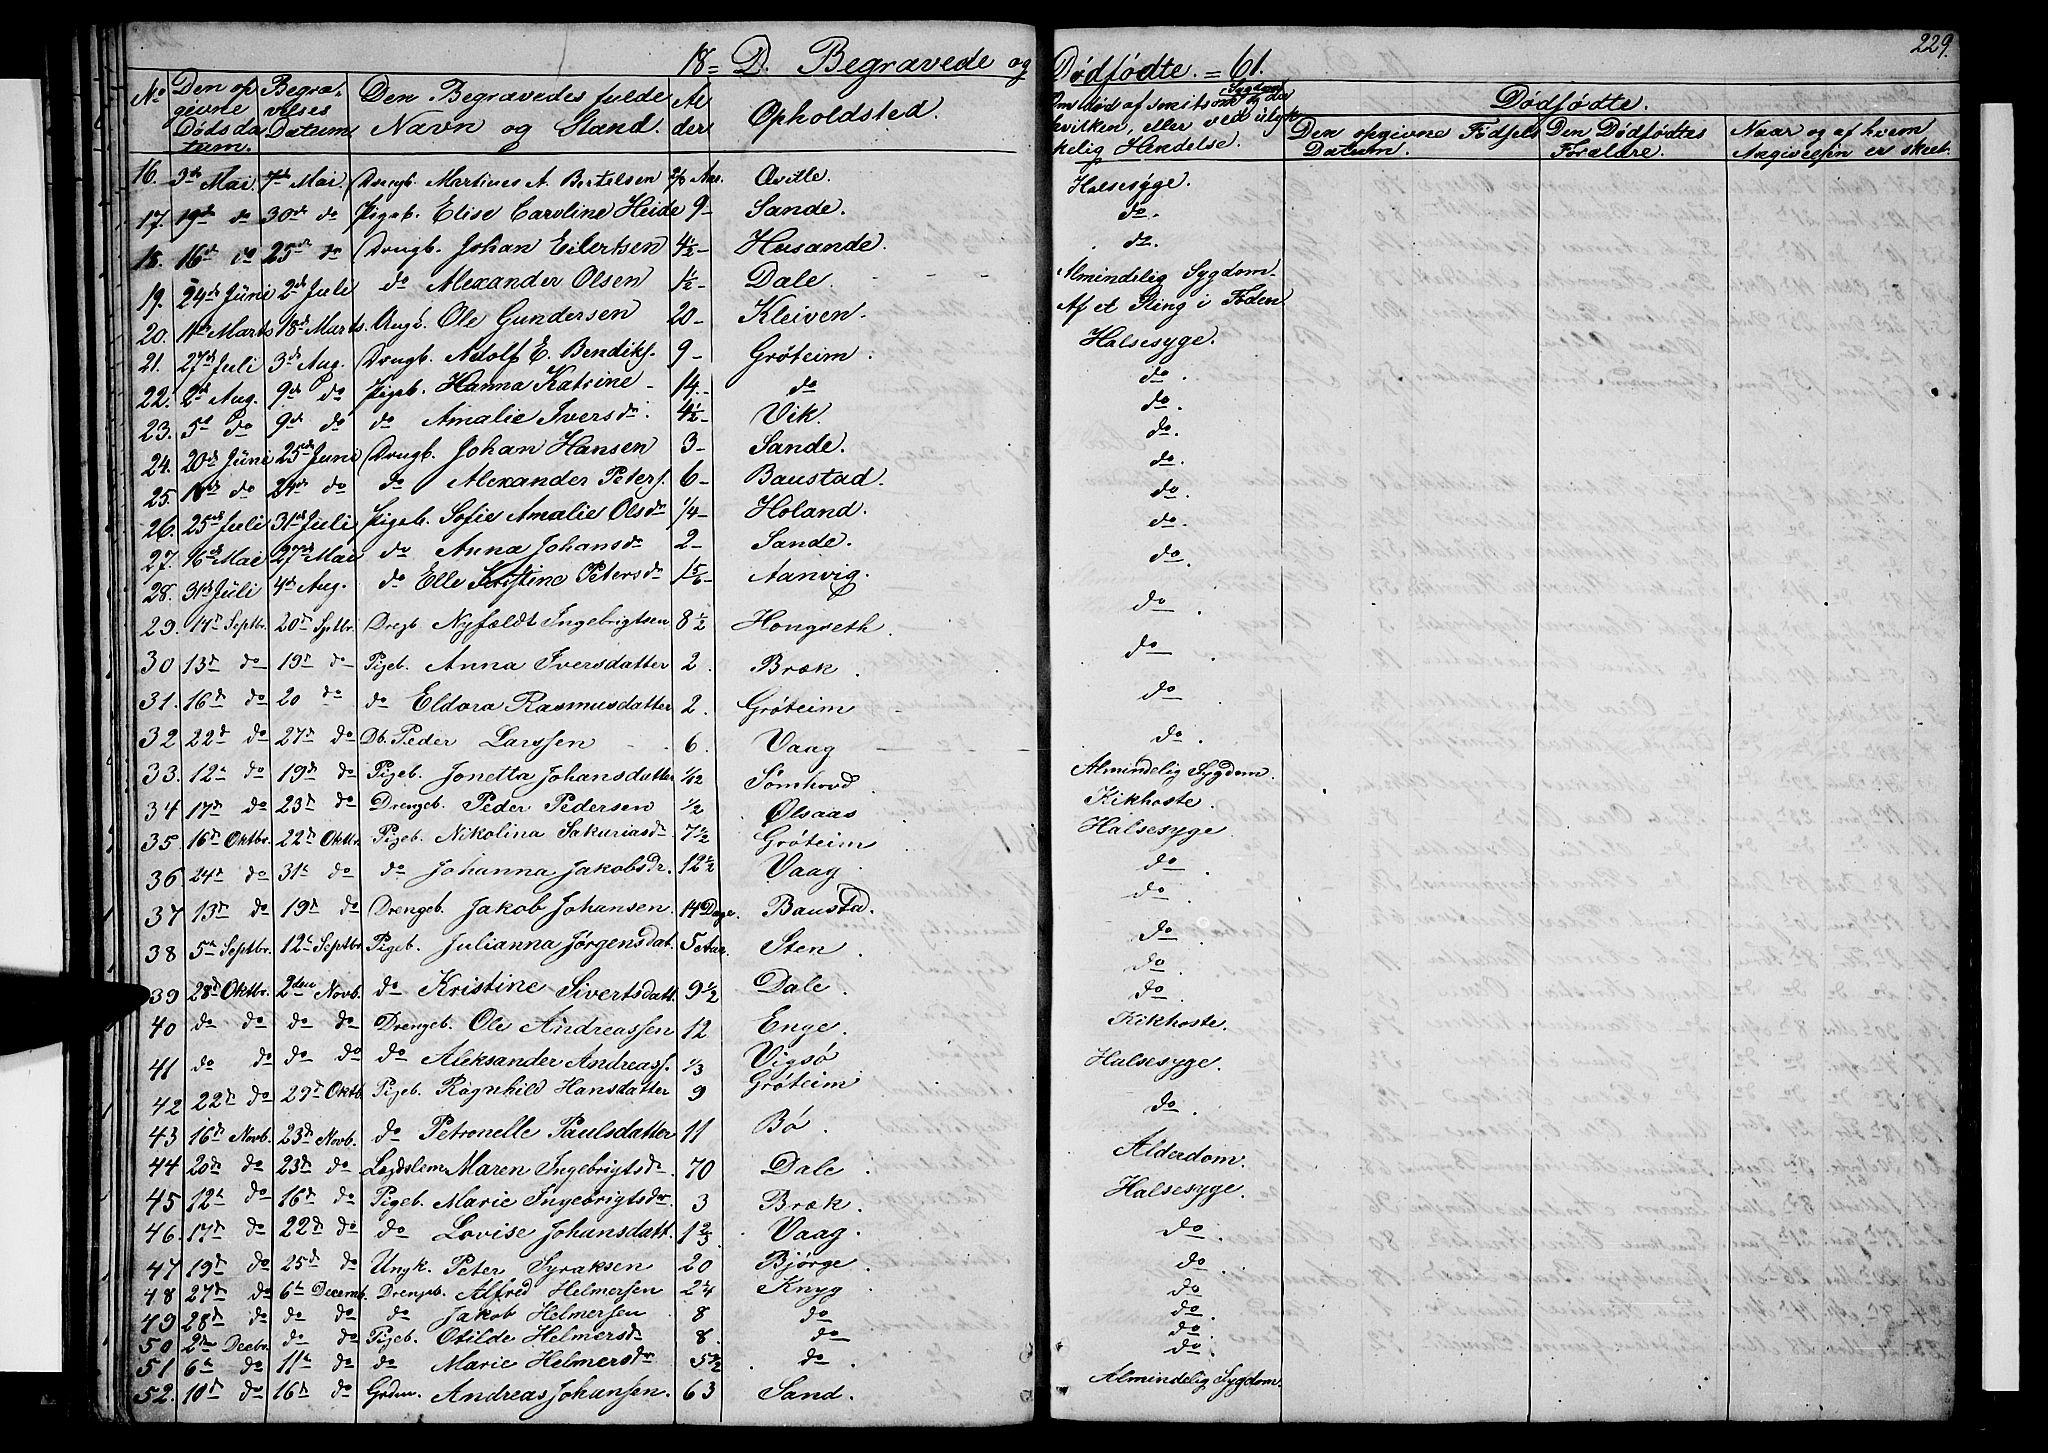 229.
18= D. Begravede og Dødfødte. = 61.
No Den opgivne Dødsdatum. Begravelses Datum. Den Begravedes fulde Navn og Stand. Alder Opholdsted. Om død af smitsom Sygdom og da hvilken, eller ved ulykkelig Hendelse. Dødfødte.
Den opgivne Fødsels Datum. Den Dødfødtes Forældre. Naar og af hvem Angivelsen er skeet.
16. 3de Mai. 7de Mai. Drngb. Martines A. Bertelsen Aar. Æville. Halsesyge.
17. 19de do 30te do Pigeb. Elise Caroline Heide 9- Sande. do.
18. 16de do 25de do Drngb. Johan Eilertsen 4½- Husande. do.
19. 24de Jüni 2de Juli do Alexander Olsen ½- Dale. Almindelig Sygdom.
20. 11te Marts 18de Marts. Ungk. Ole Gundersen 20- Kleiven. Af et Sting i Foden
21. 27de Juli 3de Aug. Drngb. Adolf E. Bendiks. 9- Gröteim. Halsesyge.
22. 2de Aug. 9de do Pigeb. Hanna Katrine - 14.- do do.
23. 5te do 9de do do Amalie Iversdr. 4½- Vik. do.
24. 20de Jüni 25de Juni Drngb. Johan Hansen 3- Sande. do.
25. 18de do 24de do do Alexander Peters. 6- Baustad. do.
26. 25de Juli 31te Juli Pigeb. Sofie Amalie Olsdr ¼- Holand. do.
27. 16de Mai 27de Mai do Anna Johansdr 2- Sande. do.
28. 31te Jüli 4de Aug. do Elle Kristine Petersdr 1 5/6- Aanvig. do.
29. 14d Septbr. 20d Septbr. Dregb. Nyfældt Ingebrigtsen 8½ Hongseth. do.
30 13d do 19d do Pigeb. Anna Iversdatter 2. Bræk. do.
31. 16d do 20 do do Eldora Rasmusdatter 2. Gröteim do
32 22d do 27d do Db. Peder Larssen 6. Vaag do.
33. 12t do 19d do Pigeb. Jonetta Johansdatter 1/12 Sömhovd. Almindelig Sygdom.
34 17d do 23d do Drengeb. Peder Pedersen ½ Olsaas Kikhoste.
35. 16d Oktbr. 22d Oktbr. Pigeb. Nikolina Sakariasdr. 7½ Gröteim Halsesyge
36 24d do 31t do do Johanna Jakobsdr. 12½ Vaag do.
37 13d do 19d do Drengeb. Jakob Johansen. 14 Dage. Baustad. do.
38 5te Septbr. 12t Septbr. Pigeb. Julianna Jørgensdat. 5 Aar. Sten do.
39 28d Oktbr. 2den Novb. do Kristine Sivertsdatt. 9½ Dale. do.
40 do do do do Drengeb. Ole Andreassen 12 Enge. Kikhoste.
41 do do do do do Aleksander Andreass. ⅓ Vigsö Halsesyge.
42 22d do 29d Oktb. Pigeb. Ragnhild Hansdatter 9 Gröteim
43 16d Novb. 23d Novb. do Petronelle Paulsdatter 11 Bö. do.
44 20d do 23d do Lægdslem Maren Ingebrigtsdr. 70 Dale. Alderdom.
45 12t do 16d do Pigeb. Marie Ingebrigtsdtr. 3 Bræk. Halsesyge.
46. 17d do 22d do do Lovise Johansdatt. 1⅔. Vaag. do.
47 19d do 25d do Ungk. Peter Syraksen 20 Bjørge. do.
48 27d do 6t Decemb. Drengeb. Alfred Helmersen 2¼ Knyg do
49 28d do do do do Jakob Helmersen 8 do do
50 2den Decbr. do do Pigeb. Otilde Helmersdr 8. do do
51 6t do 11t do do Marie Helmersdtr do. do.
52. 10d do 16d do Grdm. Andreas Johansen. 63 Sand. Almindelig Sygdom.